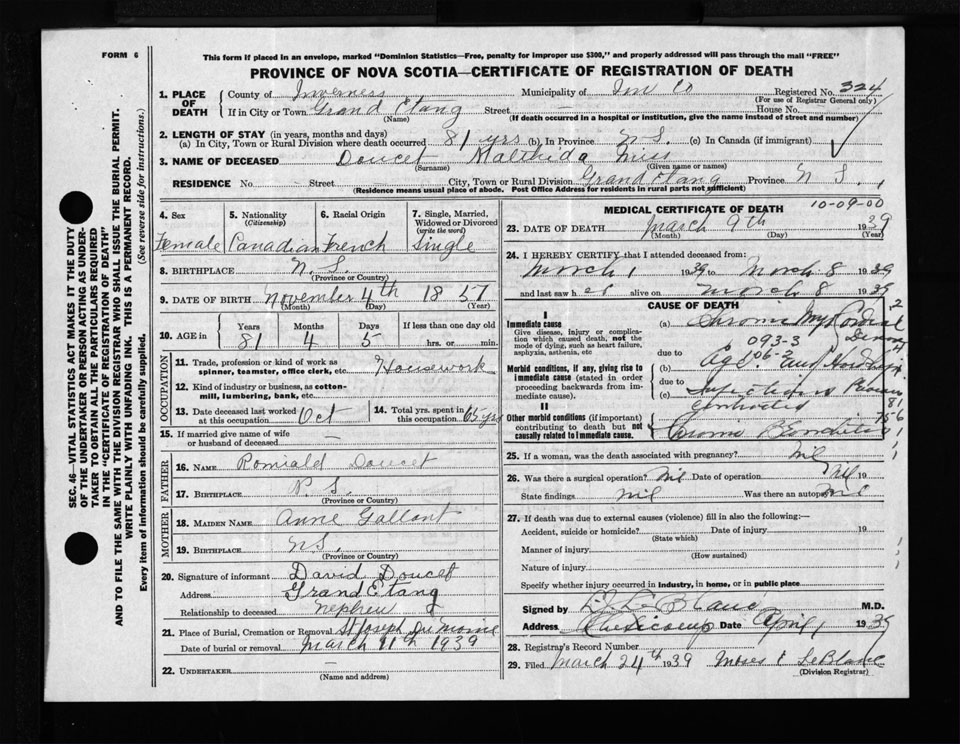 FORM 6
This form if placed in an envelope, marked "Dominion Statistics—Free, penalty for improper use $300," and properly addressed will pass through the mail "FREE"
PROVINCE OF NOVA SCOTIA—CERTIFICATE OF REGISTRATION OF DEATH
1. PLACE OF DEATH
County of Inverness Municipality of Inv Co Registered No. 324
(For use of Registrar General only)
If in City or Town Grand Etang Street — House No.
(Name) (If death occurred in a hospital or institution, give the name instead of street and number)
2. LENGTH OF STAY (in years, months and days)
(a) In City, Town or Rural Division where death occurred 81 yrs (b) In Province N S. (c) In Canada (if immigrant)
3. NAME OF DECEASED Doucet Malthida Miss
(Surname) (Given name or names)
RESIDENCE No. Street City, Town or Rural Division Grand Etang Province N S.
(Residence means usual place of abode. Post Office Address for residents in rural parts not sufficient)
SEC. 46—VITAL STATISTICS ACT MAKES IT THE DUTY
OF THE UNDERTAKER OR PERSON ACTING AS UNDER-
TAKER TO OBTAIN ALL THE PARTICULARS REQUIRED
IN THE "CERTIFICATE OF REGISTRATION OF DEATH"
AND TO FILE THE SAME WITH THE DIVISION REGISTRAR WHO SHALL ISSUE THE BURIAL PERMIT.
WRITE PLAINLY WITH UNFADING INK. THIS IS A PERMANENT RECORD.
Every item of information should be carefully supplied. (See reverse side for instructions.)
4. Sex Female
5. Nationality (Citizenship) Canadian
6. Racial Origin French
7. Single, Married, Widowed or Divorced (write the word) Single
8. BIRTHPLACE N. S.
(Province or Country)
9. DATE OF BIRTH November 4th 1857
(Month) (Day) (Year)
10. AGE in Years 81 Months 4 Days 5 If less than one day hrs. or min.
OCCUPATION
11. Trade, profession or kind of work as spinner, teamster, office clerk, etc. Housework
12. Kind of industry or business, as cotton-mill, lumbering, bank, etc.
13. Date deceased last worked at this occupation Oct
14. Total yrs. spent in this occupation 65 yrs
15. If married give name of wife or husband of deceased —
FATHER
16. NAME Romiald Doucet
17. BIRTHPLACE N. S.
(Province or Country)
MOTHER
18. MAIDEN NAME Anne Gallant
19. BIRTHPLACE N S.
(Province or Country)
20. Signature of informant David Doucet
Address Grand Etang
Relationship to deceased nephew
21. Place of Burial, Cremation or Removal St Joseph du Moine
Date of burial or removal March 11th 1939
22. UNDERTAKER —
(Name and address)
MEDICAL CERTIFICATE OF DEATH 10-09-00
23. DATE OF DEATH March 9th 1939
(Month) (Day) (Year)
24. I HEREBY CERTIFY that I attended deceased from:
March 1 1939 to March 8 1939
and last saw her alive on March 8 1939
CAUSE OF DEATH
I
Immediate cause
Give disease, injury or complication which caused death, not the mode of dying, such as heart failure, asphyxia, asthenia, etc
(a) Chronic Myocardial
093-3
due to
Morbid conditions, if any, giving rise to immediate cause (stated in order proceeding backwards from immediate cause).
(b) Age
due to
(c) Infectious
II
Other morbid conditions (if important) contributing to death but not causally related to immediate cause.
Chronic Bronchitis
25. If a woman, was the death associated with pregnancy? Nil
26. Was there a surgical operation? Nil Date of operation Nil 19
State findings Nil Was there an autopsy? Nil
27. If death was due to external causes (violence) fill in also the following:—
Accident, suicide or homicide? Date of injury 19
(State which)
Manner of injury
(How sustained)
Nature of injury
Specify whether injury occurred in industry, in home, or in public place
Signed by L. LeBlanc M.D.
Address Cheticamp Date April 1 1939
28. Registrar's Record Number
29. Filed March 24th 1939 Moses LeBlanc
(Division Registrar)